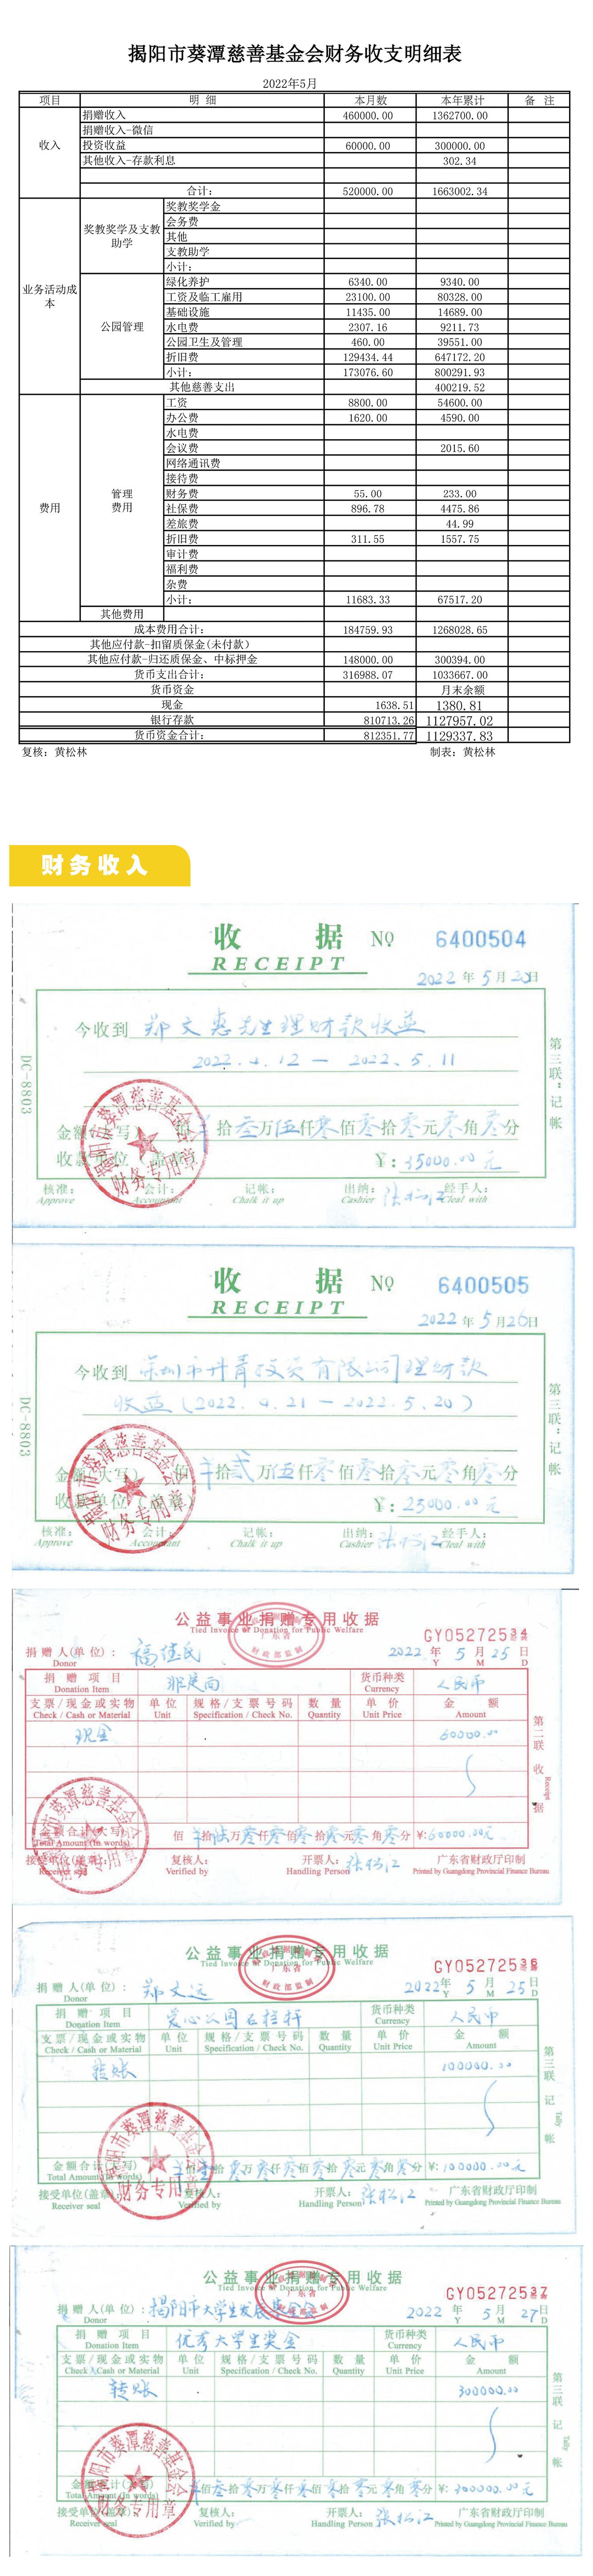 揭阳市葵潭慈善基金会财务收支明细表
2022年5月
项目 明 细 本月数 本年累计 备 注
收入
捐赠收入 460000.00 1362700.00
捐赠收入-微信
投资收益 60000.00 300000.00
其他收入-存款利息 302.34
合计: 520000.00 1663002.34
业务活动成本
奖教奖学及支教助学
奖教奖学金
会务费
其他
支教助学
小计:
公园管理
绿化养护 6340.00 9340.00
工资及临工雇用 23100.00 80328.00
基础设施 11435.00 14689.00
水电费 2307.16 9211.73
公园卫生及管理 460.00 39551.00
折旧费 129434.44 647172.20
小计: 173076.60 800291.93
其他慈善支出 400219.52
费用
管理费用
工资 8800.00 54600.00
办公费 1620.00 4590.00
水电费
会议费 2015.60
网络通讯费
接待费
财务费 55.00 233.00
社保费 896.78 4475.86
差旅费 44.99
折旧费 311.55 1557.75
审计费
福利费
杂费
小计: 11683.33 67517.20
其他费用
成本费用合计: 184759.93 1268028.65
其他应付款-扣留质保金(未付款)
其他应付款-归还质保金、中标押金 148000.00 300394.00
货币支出合计: 316988.07 1033667.00
货币资金 月末余额
现金 1638.51 1380.81
银行存款 810713.26 1127957.02
货币资金合计: 812351.77 1129337.83
复核: 黄松林 制表: 黄松林
财务收入
收 据 № 6400504
RECEIPT
2022 年 5 月 日
今收到 郑文惠先生理财款收益
2022.4.12 — 2022.5.11
金额(大写) 拾叁万伍仟零佰零拾零元零角零分
收款单位(盖章) ¥: 35000.00元
核准: 会计: 记帐: 出纳: 张松江 经手人:
Approve Accountant Chalk it up Cashier Cleal with
DC-8803
第三联:记帐
揭阳市葵潭慈善基金会
财务专用章
收 据 № 6400505
RECEIPT
2022 年 5 月 26 日
今收到 深圳市丹青投资有限公司理财款
收益(2022.4.21 — 2022.5.20)
金额(大写) 佰 拾贰万伍仟零佰零拾零元零角零分
收款单位(盖章) ¥: 25000.00元
核准: 会计: 记帐: 出纳: 张松江 经手人:
Approve Accountant Chalk it up Cashier Cleal with
DC-8803
第三联:记帐
揭阳市葵潭慈善基金会
财务专用章
公益事业捐赠专用收据
Tied Invoice of Donation for Public Welfare
广东省
财政部监制
GY05272534
捐赠人(单位): 福佳氏 2022 年 5 月 25 日
Donor Y M D
捐赠项目 货币种类 人民币
Donation Item Currency
支票/现金或实物 单位 规格/支票号码 数量 单价 金额
Check / Cash or Material Unit Specification / Check No. Quantity Unit Price Amount
现金 60000.00
金额合计(大写) 佰 拾陆万零仟零佰零拾零元零角零分 ¥: 60000.00元
Total Amount (In words)
接受单位(盖章): 复核人: 开票人: 张松江 广东省财政厅印制
Receiver seal Verified by Handling Person Printed by Guangdong Provincial Finance Bureau
第二联 收据
Receipt
公益事业捐赠专用收据
Tied Invoice of Donation for Public Welfare
广东省
财政部监制
GY05272536
捐赠人(单位): 郑文远 2022 年 5 月 25 日
Donor Y M D
捐赠项目 爱心公园石栏杆 货币种类 人民币
Donation Item Currency
支票/现金或实物 单位 规格/支票号码 数量 单价 金额
Check / Cash or Material Unit Specification / Check No. Quantity Unit Price Amount
转账 100000.00
金额合计(大写) 佰壹拾零万零仟零佰零拾零元零角零分 ¥: 100000.00元
Total Amount (In words)
接受单位(盖章): 复核人: 开票人: 张松江 广东省财政厅印制
Receiver seal Verified by Handling Person Printed by Guangdong Provincial Finance Bureau
第三联 记帐
Tally
揭阳市葵潭慈善基金会
财务专用章
公益事业捐赠专用收据
Tied Invoice of Donation for Public Welfare
广东省
财政部监制
GY05272537
捐赠人(单位): 揭阳市大学生发展基金会 2022 年 5 月 27 日
Donor Y M D
捐赠项目 优秀大学生奖金 货币种类 人民币
Donation Item Currency
支票/现金或实物 单位 规格/支票号码 数量 单价 金额
Check / Cash or Material Unit Specification / Check No. Quantity Unit Price Amount
转账 300000.00
金额合计(大写) 佰叁拾零万零仟零佰零拾零元零角零分 ¥: 300000.00元
Total Amount (In words)
接受单位(盖章): 复核人: 开票人: 张松江 广东省财政厅印制
Receiver seal Verified by Handling Person Printed by Guangdong Provincial Finance Bureau
第三联 记帐
Tally
揭阳市葵潭慈善基金会
财务专用章